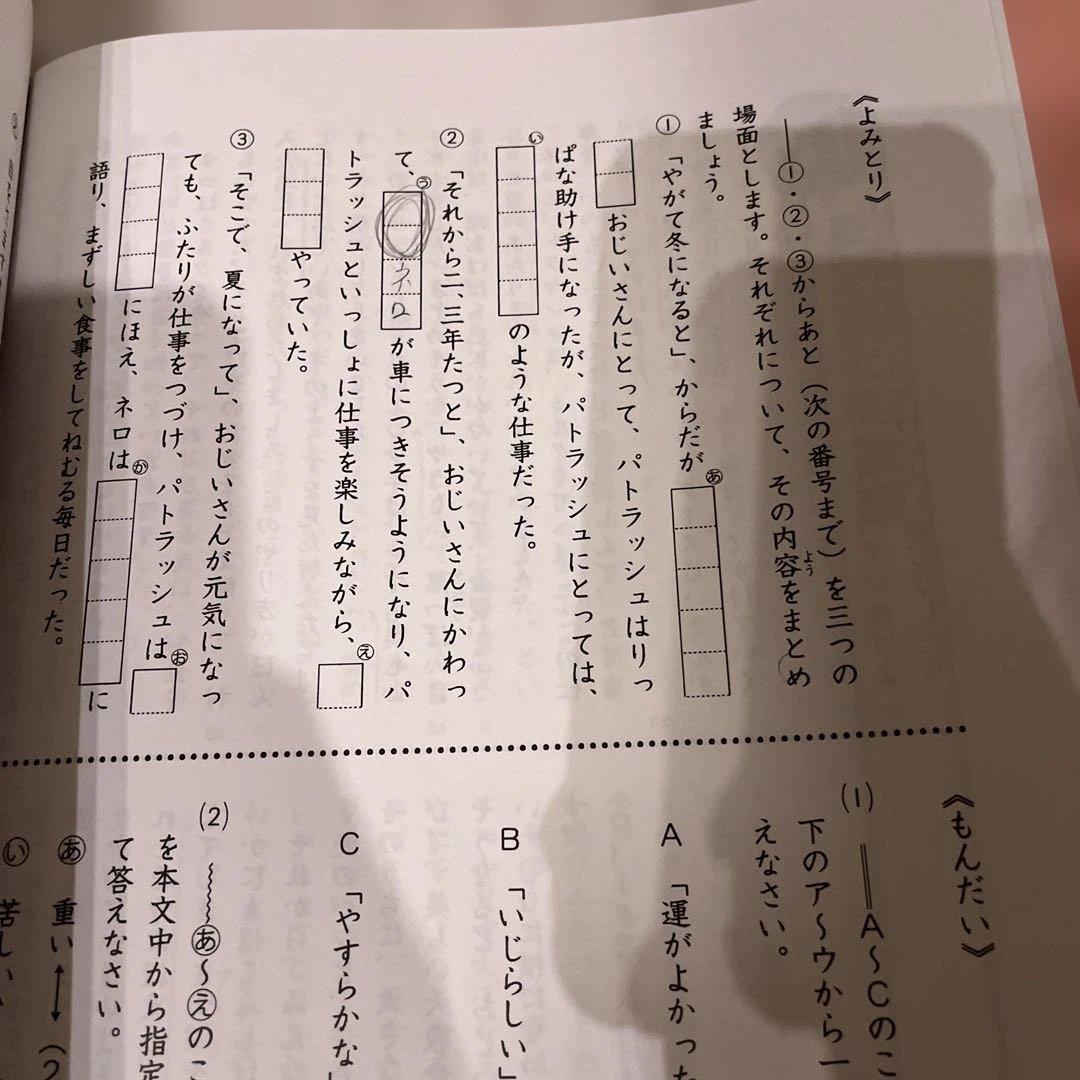 《よみとり》
――①・②・③からあと（次の番号まで）を三つの
場面とします。それぞれについて、その内容をまとめ
よう
ましょう。
① 「やがて冬になると」、からだが あ
おじいさんにとって、パトラッシュはりっ
ぱな助け手になったが、パトラッシュにとっては、
い のような仕事だった。
② 「それから二、三年たつと」、おじいさんにかわっ
て、う ネロ が車につきそうようになり、パ
トラッシュといっしょに仕事を楽しみながら、え
やっていた。
③ 「そこで、夏になって」、おじいさんが元気になっ
ても、ふたりが仕事をつづけ、パトラッシュは お
にほえ、ネロは か に
語り、まずしい食事をしてねむる毎日だった。
《もんだい》
(1) ＝＝A〜Cのこ
下のア〜ウから一
えなさい。
A 「運がよかった
B 「いじらしい」
C 「やすらかな」
(2) 〜〜〜あ〜えのこ
を本文中から指定
て答えなさい。
あ 重い↔（2
い 苦しい